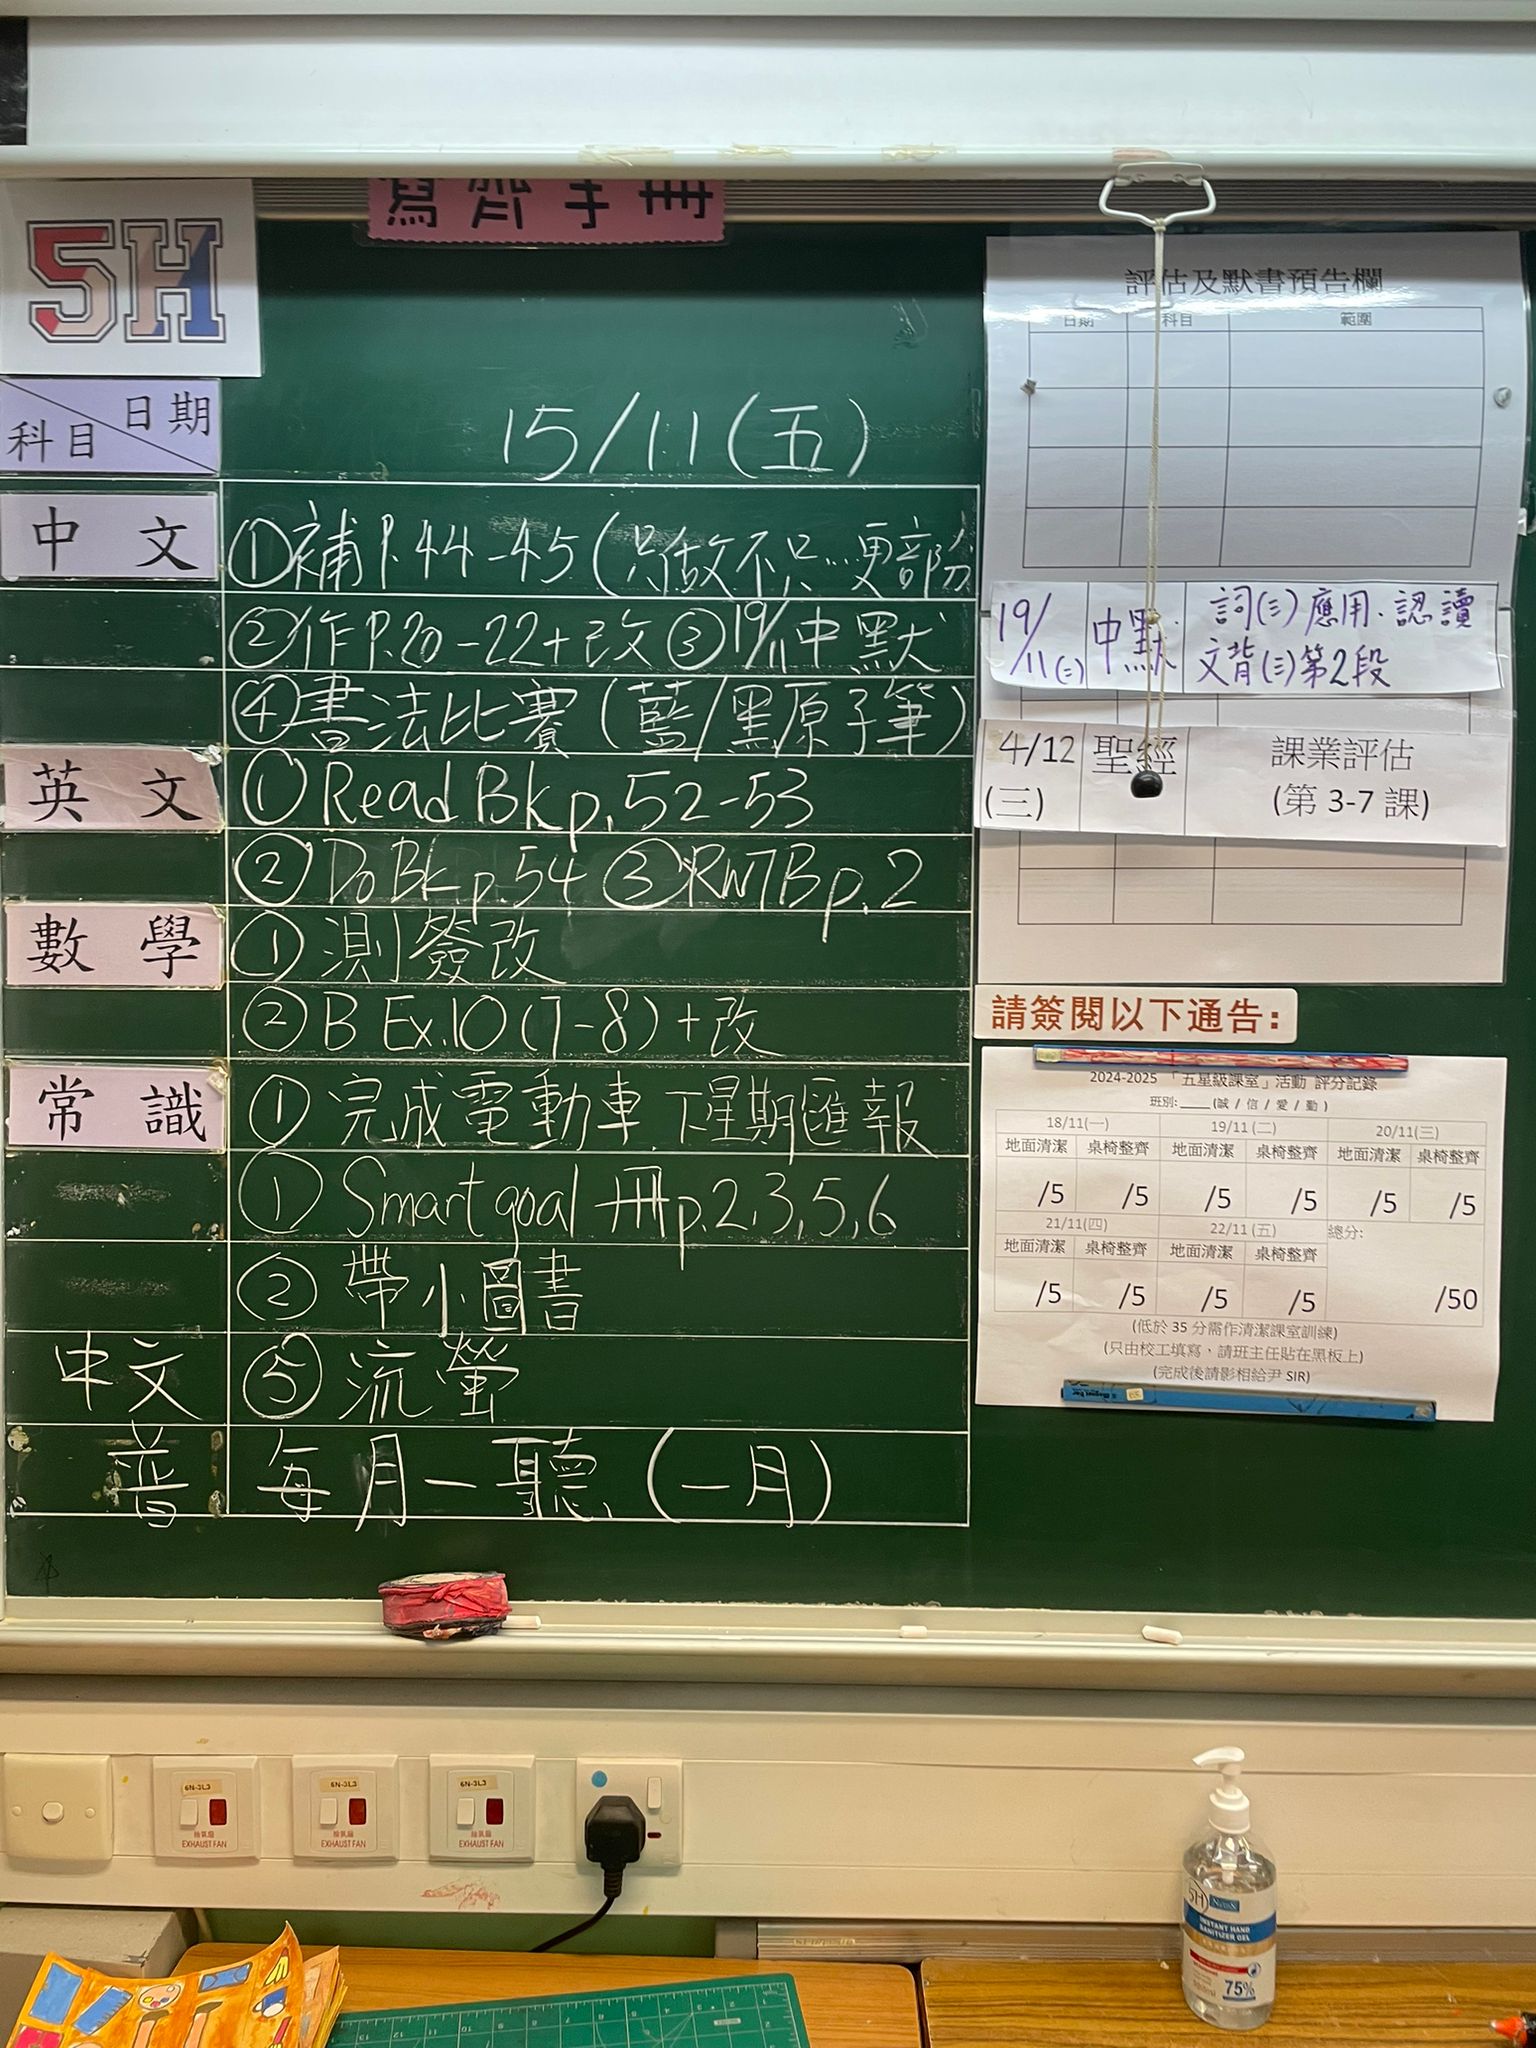 寫齊手冊
5H
日期
科目
15/11(五)
中文
①補P.44-45(只做不只…更部份
②作P.20-22+改 ③19/11中默
④書法比賽(藍/黑原子筆)
英文
①Read Bk p.52-53
②Do Bk p.54 ③RWTB p.2
數學
①測簽改
②B Ex.10(7-8)+改
常識
①完成電動車 下星期匯報
①Smart goal 冊p.2,3,5,6
②帶小圖書
中文
⑤流螢
普
每月一聽(一月)
評估及默書預告欄
日期 科目 範圍
19/11(二) 中默 詞(三)應用、認讀
文背(三)第2段
4/12 聖經 課業評估
(三) (第 3-7 課)
請簽閱以下通告:
2024-2025 「五星級課室」活動 評分記錄
班別:____(誠 / 信 / 愛 / 勤)
18/11(一) 19/11(二) 20/11(三)
地面清潔 桌椅整齊 地面清潔 桌椅整齊 地面清潔 桌椅整齊
/5 /5 /5 /5 /5 /5
21/11(四) 22/11(五) 總分:
地面清潔 桌椅整齊 地面清潔 桌椅整齊
/5 /5 /5 /5 /50
(低於 35 分需作清潔課室訓練)
(只由校工填寫,請班主任貼在黑板上)
(完成後請影相給尹 SIR)
6N-3L3 6N-3L3 6N-3L3
抽氣扇 抽氣扇 抽氣扇
EXHAUST FAN EXHAUST FAN EXHAUST FAN
5H
INSTANT HAND
SANITIZER GEL
75%